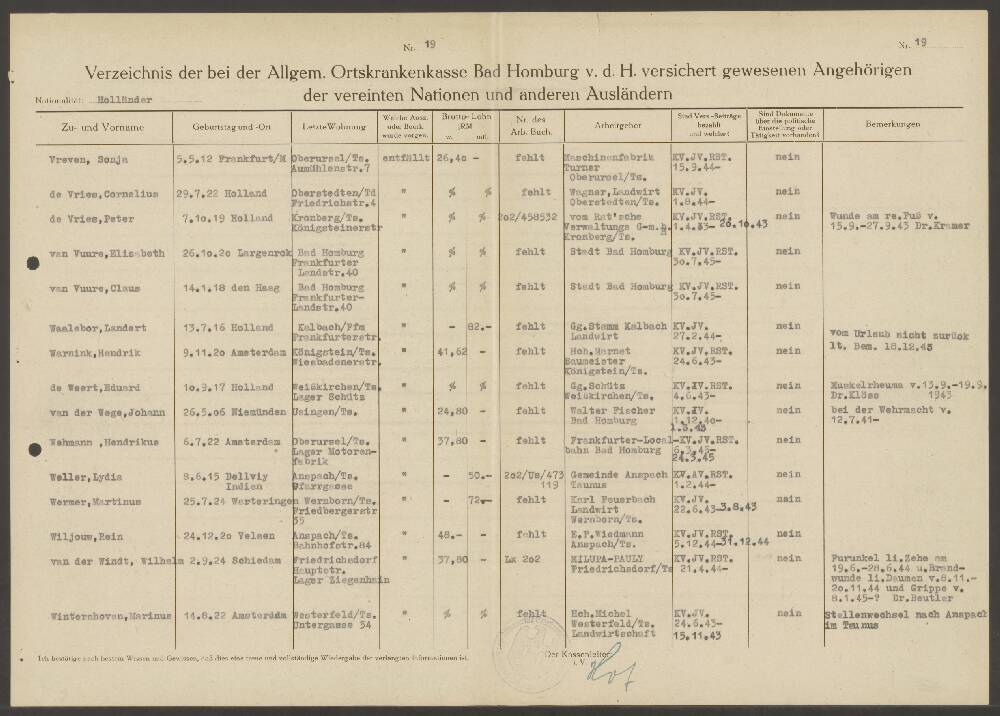 Nr. 19
Nr. 19
Verzeichnis der bei der Allgem. Ortskrankenkasse Bad Homburg v. d. H. versichert gewesenen Angehörigen
der vereinten Nationen und anderen Ausländern
Nationalität: Holländer
Zu- und Vorname Geburtstag und -Ort Letzte Wohnung Welche Ausz. oder Beurk. wurde vorgen. Brutto-Lohn RM w. mtl. Nr. des Arb. Buch. Arbeitgeber Sind Vers.-Beiträge bezahlt und welcher? Sind Dokumente über die politische Einstellung oder Tätigkeit vorhanden? Bemerkungen
Vreven, Sonja 5.5.12 Frankfurt/M Oberursel/Ts. entfällt 26,40 - fehlt Maschinenfabrik KV.JV.RST. nein
Aumühlenstr.7 Turner 15.9.44-
Oberursel/Ts.
de Vries,Cornelius 29.7.22 Holland Oberstedten/Td " % % fehlt Wagner,Landwirt KV.JV. nein
Friedrichstr.4 Oberstedten/Ts. 1.8.44-
de Vries,Peter 7.10.19 Holland Kronberg/Ts. " % % 202/458532 vom Rat'sche KV.JV.RST. nein Wunde am re.Fuß v.
Königsteinerstr Verwaltungs G-m.b. 1.4.33- 20.10.43 15.9.-27.9.43 Dr.Kramer
Kronberg/Ts.
van Vuure,Elisabeth 26.10.20 Largenrok Bad Homburg " % % fehlt Stadt Bad Homburg KV.JV.RST. nein
Frankfurter 30.7.45-
Landstr.40
van Vuure,Claus 14.1.18 den Haag Bad Homburg " % % fehlt Stadt Bad Homburg KV.JV.RST. nein
Frankfurter- 30.7.45-
Landstr.40
Waalebor,Landert 13.7.16 Holland Kalbach/Ffm " - 82.- fehlt Gg.Stamm Kalbach KV.JV. nein vom Urlaub nicht zurück
Frankfurterstr. Landwirt 27.2.44- lt. Bem. 18.12.43
Warnink,Hendrik 9.11.20 Amsterdam Königstein/Ts. " 41,62 - fehlt Hch.Marnet KV.JV.RST. nein
Wiesbadenerstr. Baumeister 24.6.43-
Königstein/Ts.
de Weert,Eduard 10.9.17 Holland Weißkirchen/Ts. " % % fehlt Gg.Schütz KV.IV.RST. nein Muskelrheuma v.13.9.-19.9.
Lager Schütz Weißkirchen/Ts. 4.6.43- Dr.Klöss 1943
van der Wege,Johann 26.5.06 Niemünden Usingen/Ts. " 24,80 - fehlt Walter Fischer KV.IV. nein bei der Wehrmacht v.
Bad Homburg 1.12.40- 12.7.41-
1.3.43
Wehmann ,Hendrikus 6.7.22 Amsterdam Oberursel/Ts. " 37,80 - fehlt Frankfurter-Local- KV.JV.RST. nein
Lager Motoren- bahn Bad Homburg 6.3.45-
fabrik 24.3.45
Weller,Lydia 8.6.15 Dellviy Anspach/Ts. " - 50.- 202/Us/473 Gemeinde Anspach KV.AV.RST. nein
Indien Pfarrgasse 119 Taunus 1.2.44-
Wermer,Martinus 25.7.24 Werteringen Wernborn/Ts. " - 72.- fehlt Karl Feuerbach KV.JV. nein
Friedbergerstr Landwirt 22.6.43-3.8.43
35 Wernborn/Ts.
Wiljouw,Rein 24.12.20 Velsen Anspach/Ts. " 48.- - fehlt E.F.Wiedmann KV.JV.RST. nein
Bahnhofstr.84 Anspach/Ts. 5.12.44-31.12.44
van der Windt, Wilhelm 2.9.24 Schiedam Friedrichsdorf " 37,80 - Lx 202 MILUPA-PAULY KV.JV.RST. nein Furunkel li.Zehe am
Hauptstr. Friedrichsdorf/Ts 21.4.44- 19.6.-28.6.44 u.Brand-
Lager Ziegenhain wunde li.Daumen v.8.11.-
20.11.44 und Grippe v.
8.1.45-? Dr.Beutler
Winterhoven,Marinus 14.8.22 Amsterdam Westerfeld/Ts. " % % fehlt Hch.Michel KV.JV. nein Stellenwechsel nach Anspach
Untergasse 54 Westerfeld/Ts. 24.6.43- im Taunus
Landwirtschaft 15.11.43
Ich bestätige nach bestem Wissen und Gewissen, daß dies eine treue und vollständige Wiedergabe der verlangten Informationen ist.
Der Kassenleiter:
i.V.